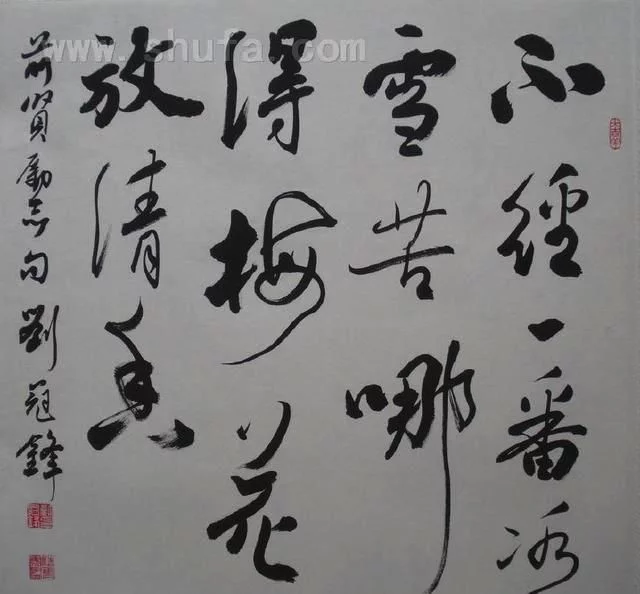 不經一番冰
雪苦哪
得梅花
放清香
前賢勵志句劉冠鋒
www.shufa.com